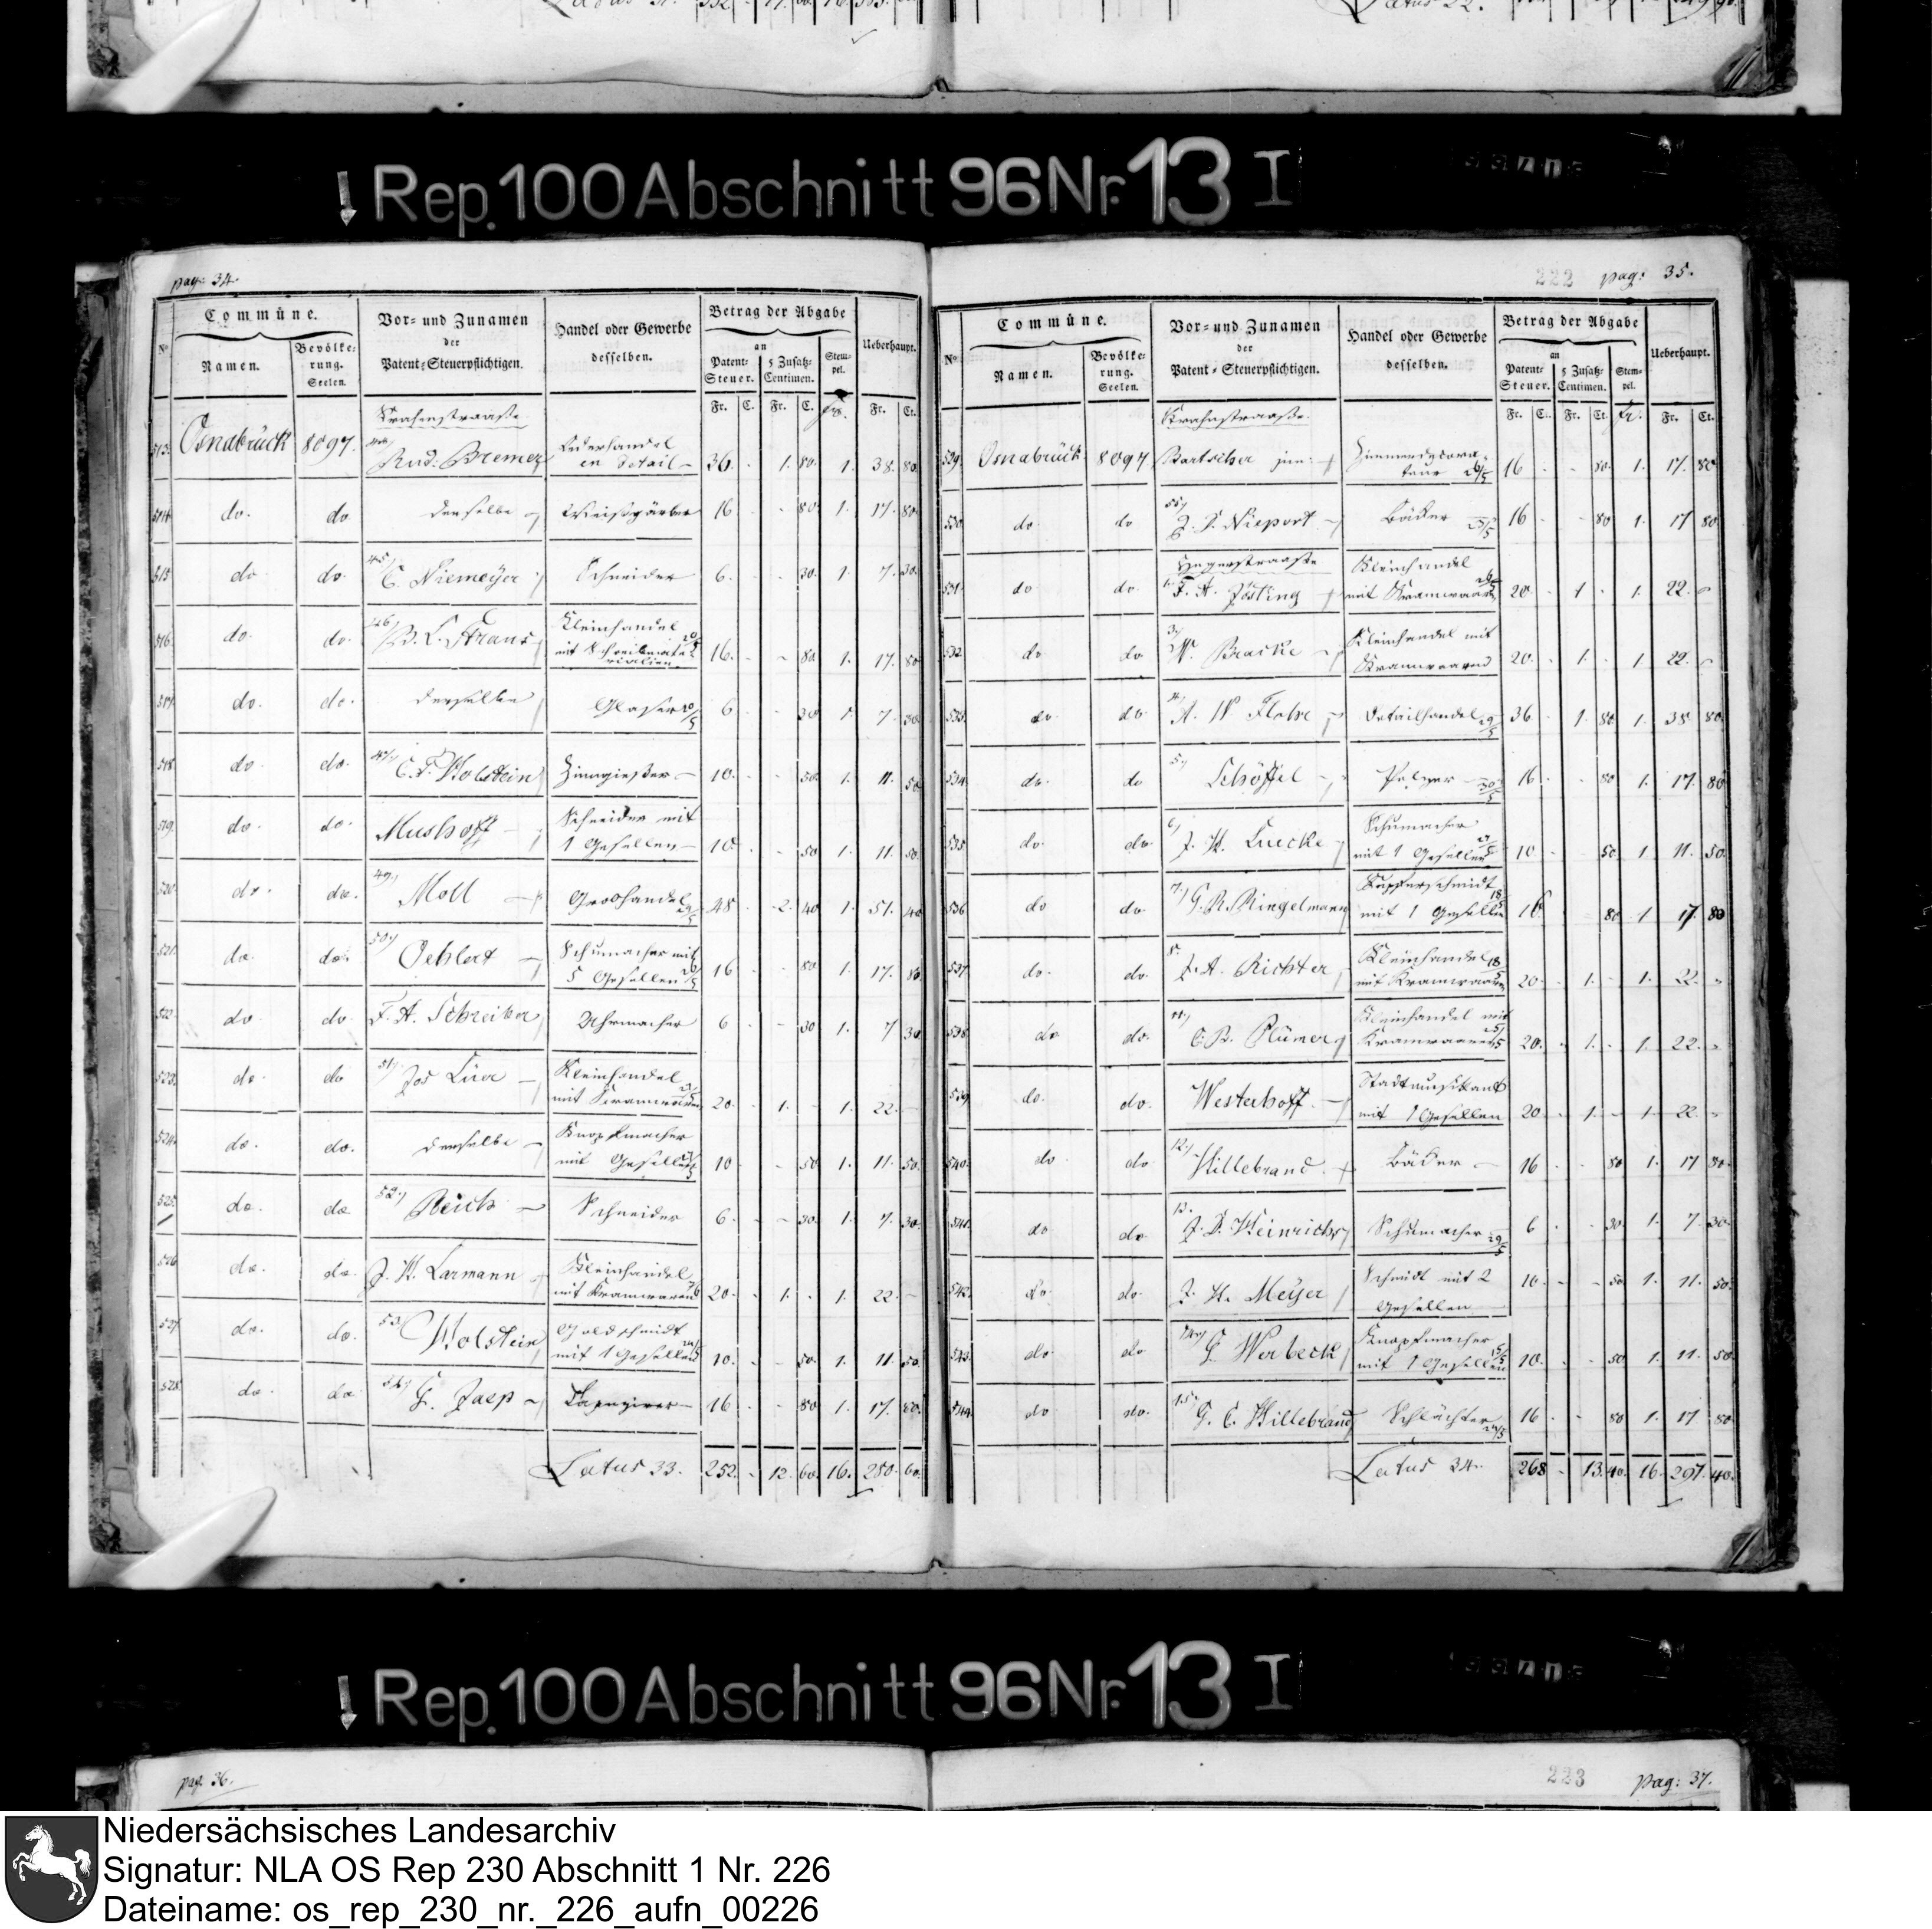 Latus 22.
Rep. 100 Abschnitt 96 Nr. 13 I
pag: 34.
No
Commüne.
Namen.
Bevölke-
rung.
Seelen.
Vor- und Zunamen
der
Patent-Steuerpflichtigen.
Handel oder Gewerbe
desselben.
Betrag der Abgabe
an
Patent-
Steuer.
5 Zusatz-
Centimen.
Stem-
pel.
Ueberhaupt.
Fr. C. Fr. C. fr. Fr. Ct.
Krahnstraasse
513. Osnabrück 8097. Rud. Bremer Lederhandel
en detail 36. 1. 80. 1. 38. 80.
514. do. do derselbe Weissgärber 16 80. 1. 17. 80.
515 do do. 45/ C. Niemeyer Schneider 6. 30. 1. 7. 30.
516. do. do. 46/ Kleinhandel
mit Schreibmate-
rialien 16. 80. 1. 17. 80
517. do. do. derselbe Glaser 6 30 1. 7. 30
518. do do. C. F. Holstein Zinngiesser 10. 50. 1. 11. 50
519. do. do. Mushoff Schneider mit
1 Gesellen 10. 50 1. 11. 50.
520. do. do. 49/ Moll Grosshandel 48 2. 40 1. 51. 40
521. do. do. 50/ Oehlert Schumacher mit
5 Gesellen 16 80 1. 17. 80.
522 do do F. A. Schreiber Uhrmacher 6 30 1. 7 30
523. do. do 51/ Jos Lürr Kleinhandel
mit Kramwaren 20. 1. 1. 22.
524. do. do. derselbe Knopfmacher
mit Gesellen 10 50 1. 11. 50.
525. do. do 52/ Reich Schneider 6. 30. 1. 7. 30.
526 do. do. J. H. Larmann Kleinhandel
mit Kramwaren 20. 1. 1. 22.
527. do. do. 53/ Holstein Goldschmidt
mit 1 Gesellen 10. 50. 1. 11. 50.
528. do. do 54/ G. Jaep Tapezirer 16 80 1. 17. 80.
Latus 33. 252. 12. 60. 16. 280. 60.
222 pag: 35.
No
Commüne.
Namen.
Bevölke-
rung.
Seelen.
Vor- und Zunamen
der
Patent-Steuerpflichtigen.
Handel oder Gewerbe
desselben.
Betrag der Abgabe
an
Patent-
Steuer.
5 Zusatz-
Centimen.
Stem-
pel.
Ueberhaupt.
Fr. C. Fr. Ct. fr. Fr. Ct.
Krahnstraasse.
529. Osnabrück 8097 Bartscher jun: 16 80. 1. 17. 80
530. do. do 55/ J. F. Nieport Bäcker 16 80 1. 17 80
Hegerstraasse
531. do do. F. A. Jösting Kleinhandel
mit Kramwaaren 20. 1 1. 22.
532. do do 3/ W. Bracke Kleinhandel mit
Kramwaaren 20. 1. 1. 22.
533. do do. 4/ A. W Flohr Detailhandel 36 1. 80. 1. 38. 80.
534. do. do 5/ Schöffel Pelzer 16 80 1. 17. 80
535 do. do. 6/ J. H. Luecke Schumacher
mit 1 Gesellen 10 50 1 11. 50.
536 do do. 7/ G. R. Ringelmann Kupferschmidt
mit 1 Gesellen 16 80 1 17. 80
537. do. do. 8. J. A. Richter Kleinhandel
mit Kramwaaren 20. 1. 1. 22.
538. do. do. 11/ C. B. Plümer Kleinhandel mit
Kramwaaren 20. 1. 1. 22.
539 do. do. Westerhoff Stadtmusikant
mit 1 Gesellen 20 1. 1 22.
540. do do 12/ Hillebrand Bäcker 16 80 1. 17 80.
541. do do 13. J. D. Heinrichs Schumacher 6 30. 1. 7. 30.
542. do do. J. H. Meijer Schmidt mit 2
Gesellen 10. 50 1. 11. 50.
543. do. do 14/ G. Werbeck Knopfmacher
mit 1 Gesellen 10. 50 1. 11. 50.
544. do do. 15/ G. C. Hillebrand Schlächter 16 80 1. 17 80
Latus 34. 268 13. 40. 16. 297. 40.
Rep. 100 Abschnitt 96 Nr. 13 I
pag. 36.
223 pag: 37.
Niedersächsisches Landesarchiv
Signatur: NLA OS Rep 230 Abschnitt 1 Nr. 226
Dateiname: os_rep_230_nr._226_aufn_00226